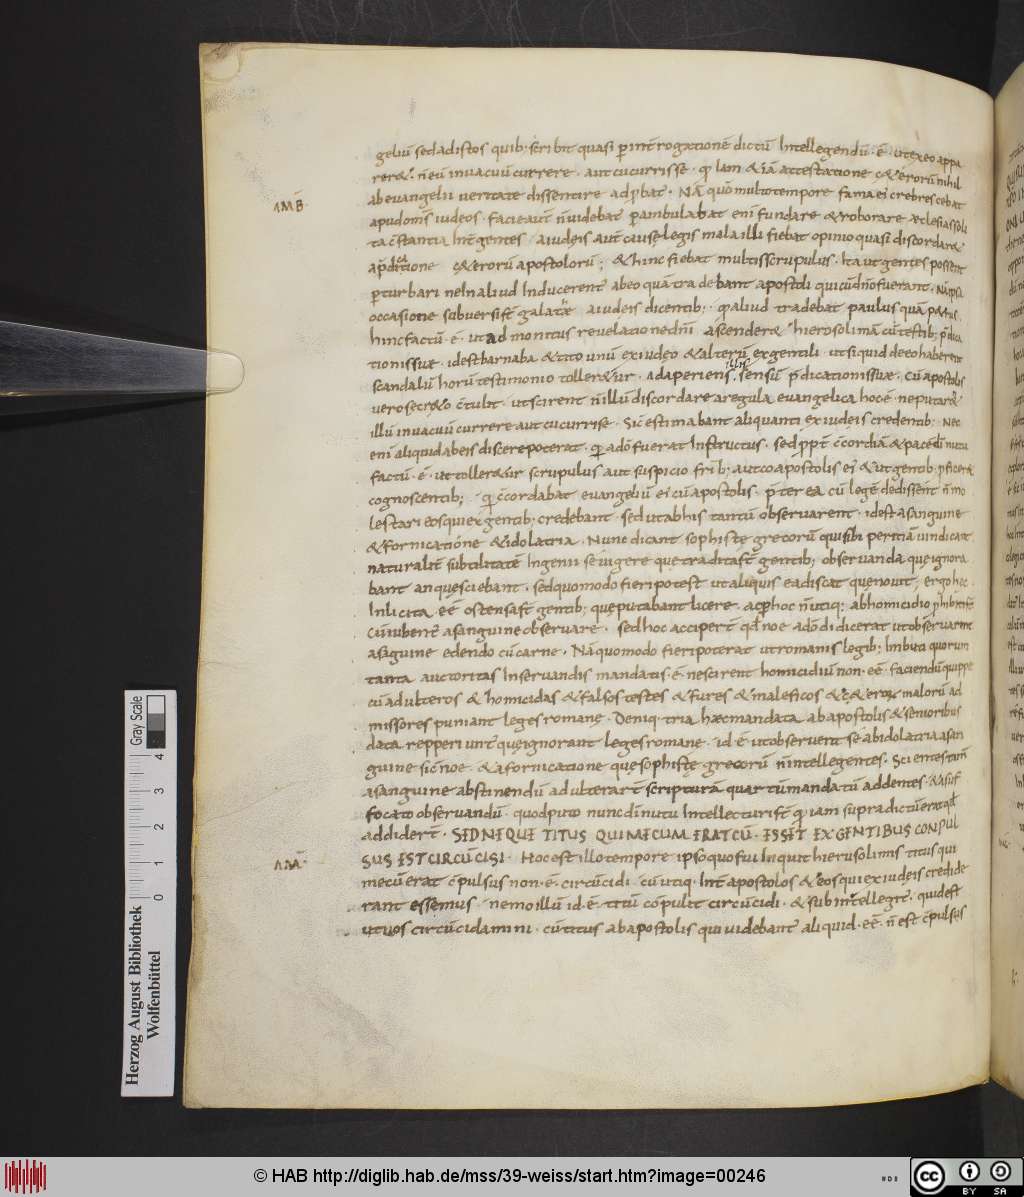 geliū sed ad istos quib; scribit quasi p introgationē dictū Intellegendū · ē · ut ex eo appa
rer& · n̄ eū in vacuū currere · aut cucurrisse · iam &iā attestatione c&erorū nihil
ab evangelii veritate dissentire ad pbat · Nā quō multo tempore fama ei crebrescebat
apud om̄s iudeos · pambulabat enī fundare & roborare æclesias soli
ta cstantia Int gentes · aiudeis aut causę legis mala illi fiebat opinio quasi discordar&
c&erorū apostolorū ; & hinc fiebat multis scrupulus · Ita ut gentes possent
pturbari ne In aliud Inducerent ab eo quā tradebant apostoli qui cū dn̄o fuerant ·
occasione subversi st galatæ aiudeis dicentib; · aliud tradebat paulus quā p&rus ·
hinc factū · ē · ut ad monitus revelatione dn̄i ascender& hierosolimā cū testib; pdica
tionis suæ · id est barnaba & tito unū ex iudeo & alterū ex gentili · ut si quid de eo haberent
scandalū horū testimonio toller&ur · adaperiens illis sensū pdicationis suæ · cū apostolis
vero secr&o ctulit · ut scirent n̄ illū discordare a regula evangelica hoc ē ne putar&
illū in vacuū currere aut cucurrisse · Sic estimabant aliquanti ex iudeis credentib; · Nec
enī aliquid ab eis discere poterat · ado fuerat Instructus · sed ppt ccordiā & pacē nutu
factū · ē · ut toller&ur scrupulus aut suspicio frib; aut coapostolis ei & ut gentib; pficer&
cognoscentib; · ccordabat evangeliū ei cū apostolis · pter ea cū legē dedissent n̄ mo
lestari eos qui ex gentib; credebant · sed ut ab his tantū observarent · id est a sanguine
& fornicatione & idolatria · Nunc dicant sophistę grecorū qui sibi peritiā uindicant
naturalit subtilitatē Ingenii se uigere que tradita st gentib; observanda que ignora
bant an quę sciebant · sed quomodo fieri potest ut aliquis ea discat que novit ; ergo hoc
Inlicita · eē ostensa st gentib; quę putabant licere · ac p hoc n̄ utiq; ab homicidio phibiti st
cū iubent a sanguine observare · sed hoc accipert qd noe ado didicerat ut observarent
a sāguine edendo cū carne · Nā quomodo fieri poterat ut romanis legib; Imbuti quorum
tanta auctoritas In servandis mandatis · ē · nescirent homicidiū non · eē · faciendū quippe
cū adulteros & homicidas & falsos testes & fures & maleficos & c&eroꝝ malorū ad
missores puniant leges romane · Deniq; tria hæc mandata ab apostolis & senioribus
data repperiunt quę ignorant leges romane · id · ē · ut observent se ab idolatria a san
guine sic noe · & a fornicatione que sophistę grecorū n̄ intellegentes · Scientes tam̄
a sanguine abstinendū adulterart scripturā quartū mandatū addentes · & a suf
focato observandū · quod puto nunc dī nutu Intellecturi st iam supra dictū erat qd
addidert · SED NEQUE TITUS QUI MECUM ERAT CŪ · ESSET EX GENTIBUS CONPUL
SUS EST CIRCŪCISI · Hoc est illo tempore ipso quo fui Inquit hierusolimis titus qui
mecū erat cpulsus non · ē · circūcidi · cū utiq; · Int apostolos & eos qui ex iudeis credide
rant essemus nemo illū id · ē · titū copulit circūcidi · & subintellegit · quid est
ut uos circūcidamini · cū titus ab apostolis qui uidebant aliquid · eē · n̄ est cpulsus
Herzog August Bibliothek
Wolfenbüttel
Gray Scale
0 1 2 3 4
© HAB http://diglib.hab.de/mss/39-weiss/start.htm?image=00246
cc BY SA